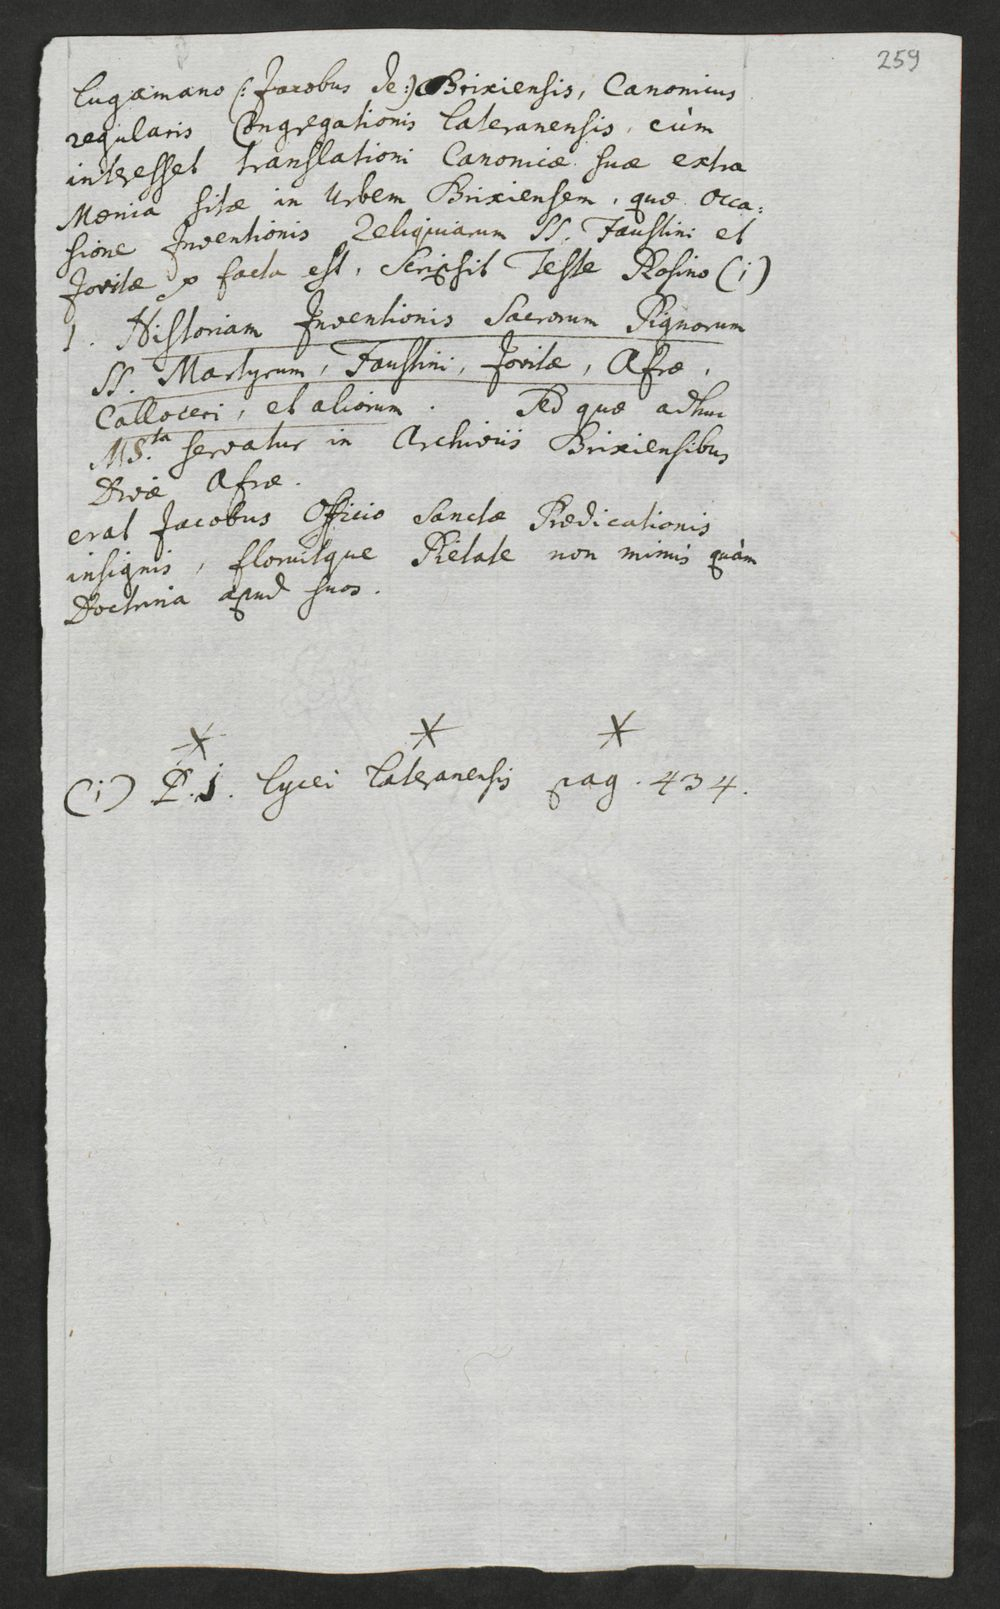 259
Lugæmano (: Jacobus de :) Brixiensis, Canonicus
regularis Congregationis Lateranensis, cùm
interesset translationi Canonicæ suæ extra
Mœnia sitæ in Urbem Brixiensem, quæ occa=
sione Inventionis Reliquiarum SS. Faustini et
Jovitæ facta est, scripsit Teste Rosino (1)
1. Historiam Inventionis Sacrorum Pignorum
SS. Martyrum, Faustini, Jovitæ, Afræ,
Calloceri, et aliorum. Sed quæ adhuc
MS.ta servatur in Archiviis Brixiensibus
Divæ Afræ.
erat Jacobus Officio Sanctæ Prædicationis
insignis, floruitque Pietate non minus quàm
Doctrina apud suos.
* * *
(1) P. 1. Lycei Lateranensis pag. 434.